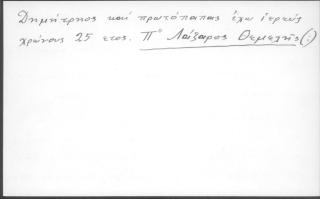 Δημήτρηος καί πρωτόπαπας ἔχω ἱερεύς
χρόνους 25 ετος. Πο Λάζαρος Θεμελῆς (;)